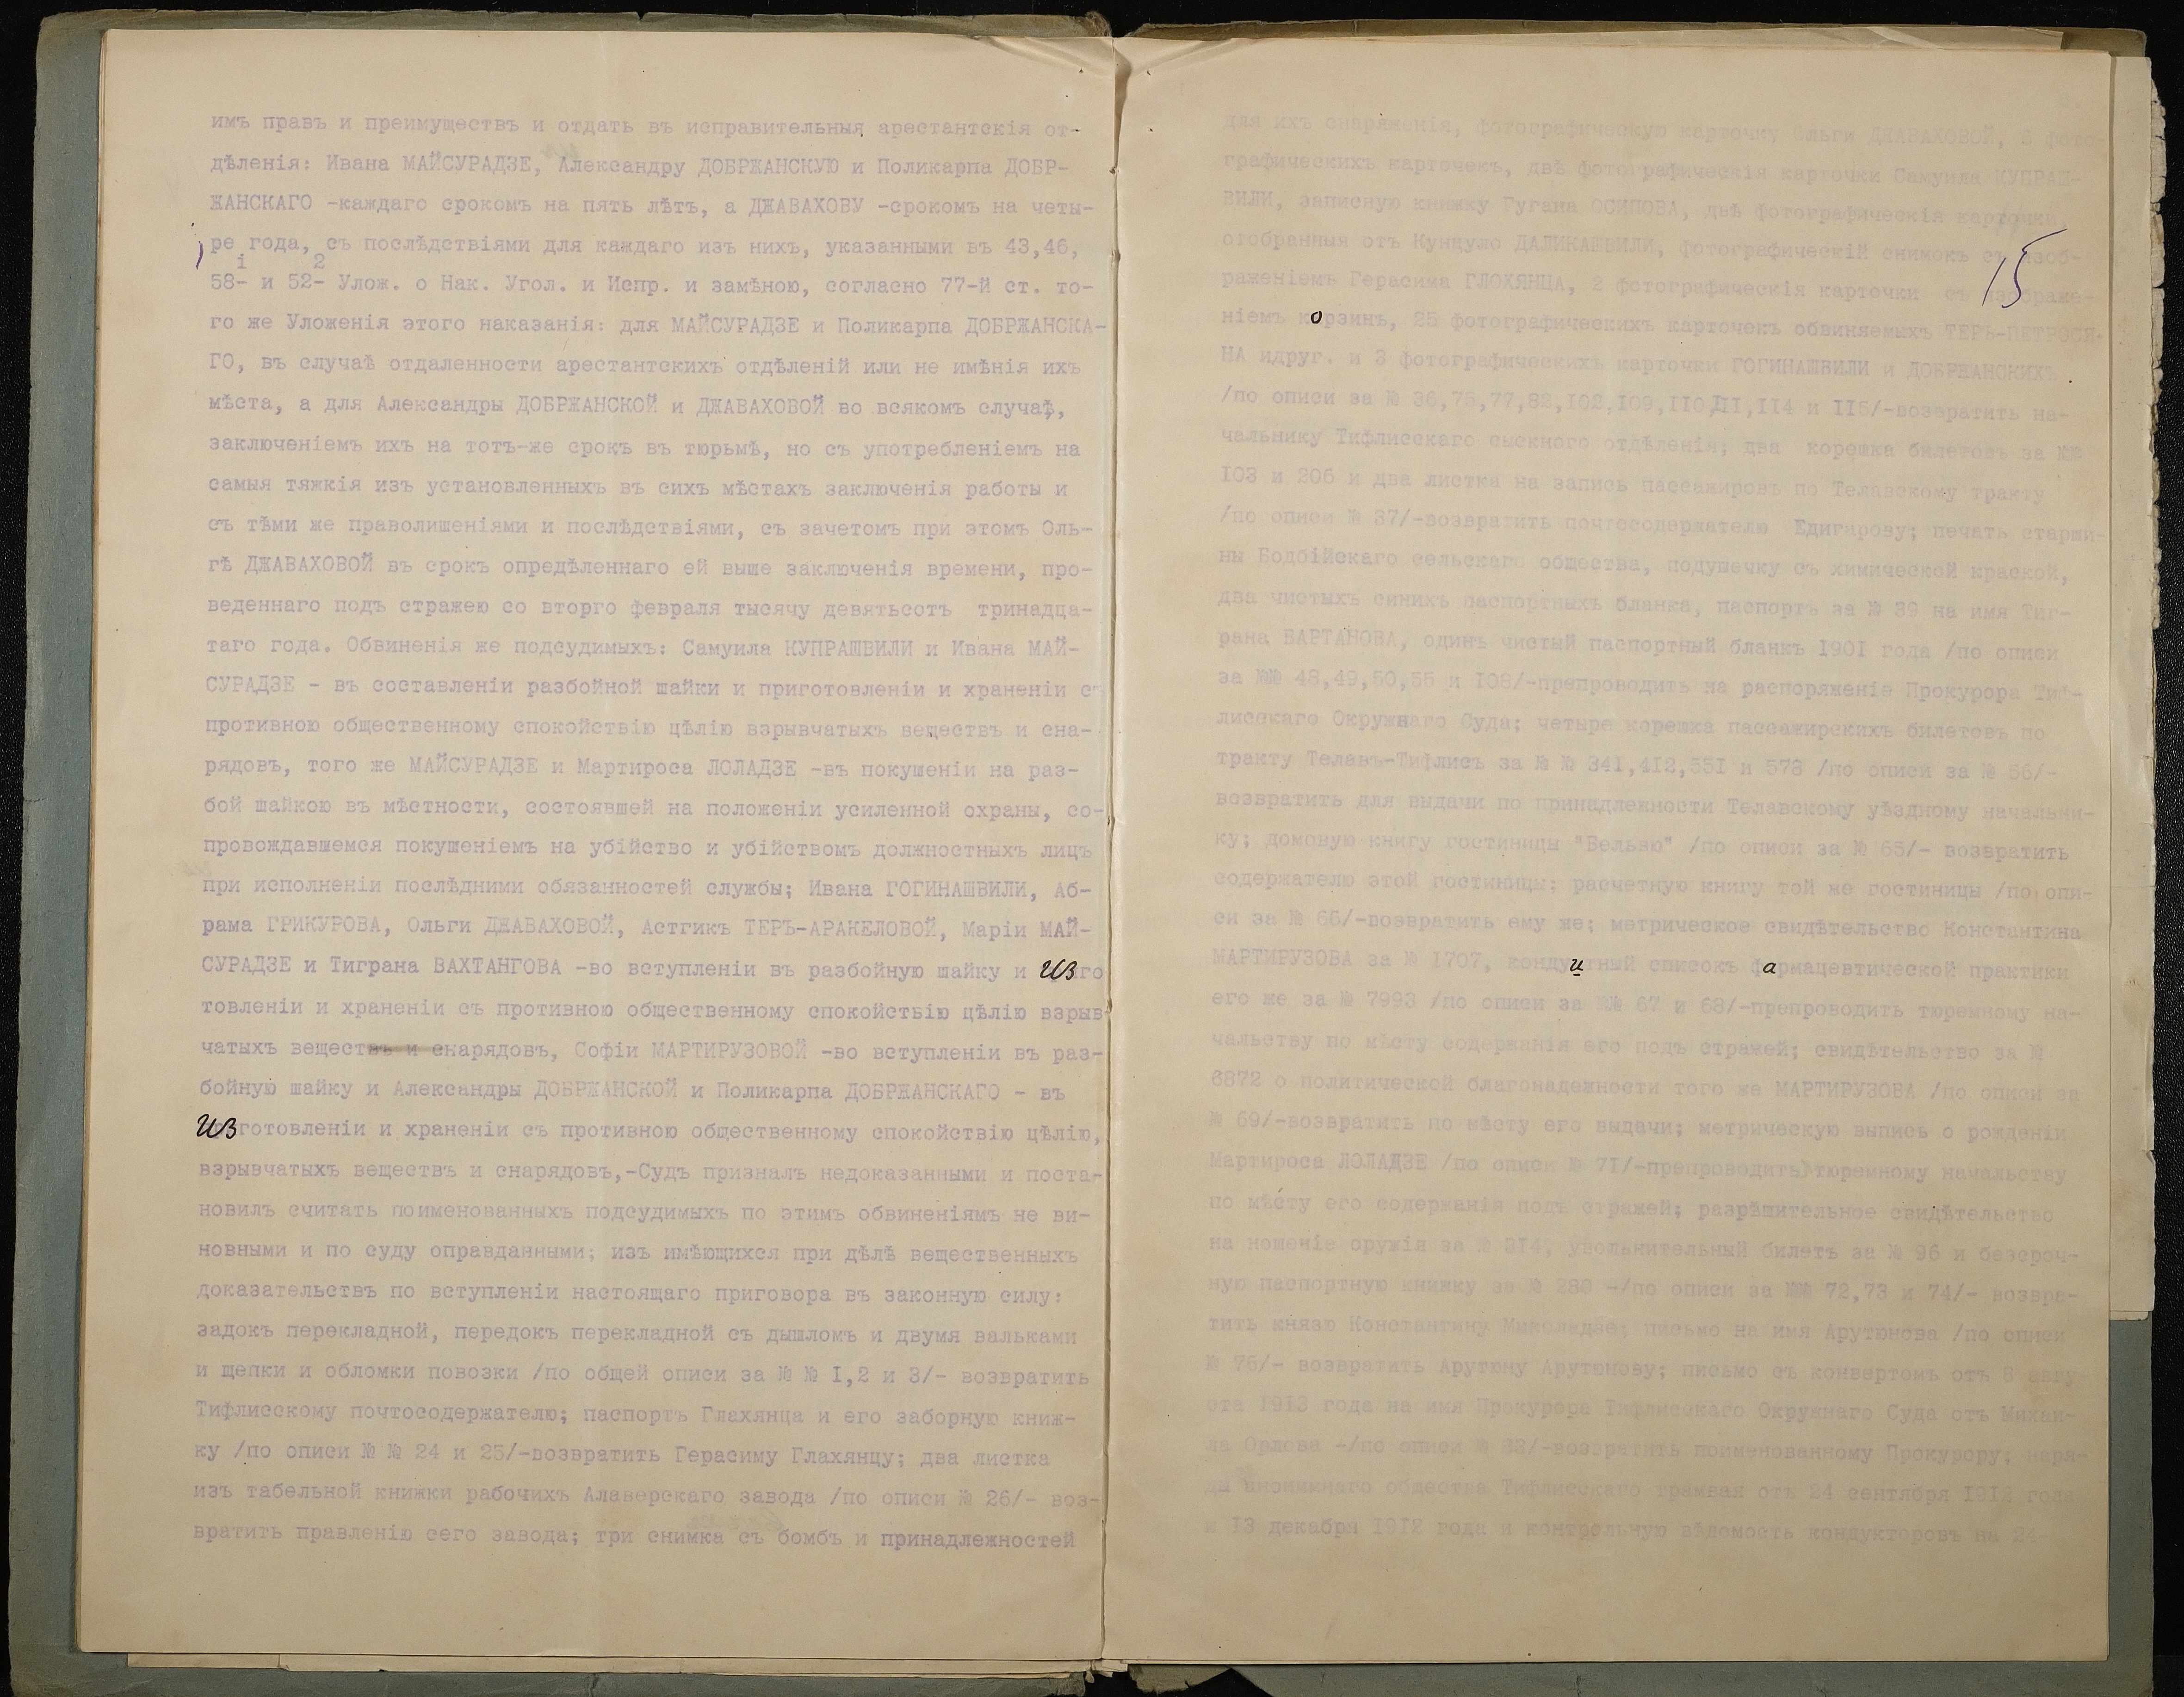 имъ правъ и преимуществъ и отдать въ исправительныя арестантскія от-
дѣленія: Ивана МАЙСУРАДЗЕ, Александру ДОБРЖАНСКУЮ и Поликарпа ДОБР-
ЖАНСКАГО -каждаго срокомъ на пять лѣтъ, а ДЖАВАХОВУ -срокомъ на четы-
ре года, съ послѣдствіями для каждаго изъ нихъ, указанными въ 43,46,
58-1 и 52-2 Улож. о Нак. Угол. и Испр. и замѣною, согласно 77-й ст. то-
го же Уложенія этого наказанія: для МАЙСУРАДЗЕ и Поликарпа ДОБРЖАНСКА-
ГО, въ случаѣ отдаленности арестантскихъ отдѣленій или не имѣнія ихъ
мѣста, а для Александры ДОБРЖАНСКОЙ и ДЖАВАХОВОЙ во всякомъ случаѣ,
заключеніемъ ихъ на тотъ-же срокъ въ тюрьмѣ, но съ употребленіемъ на
самыя тяжкія изъ установленныхъ въ сихъ мѣстахъ заключенія работы и
съ тѣми же праволишеніями и послѣдствіями, съ зачетомъ при этомъ Оль-
гѣ ДЖАВАХОВОЙ въ срокъ опредѣленнаго ей выше заключенія времени, про-
веденнаго подъ стражею со второго февраля тысячу девятьсотъ тринадца-
таго года. Обвиненія же подсудимыхъ: Самуила КУПРАШВИЛИ и Ивана МАЙ-
СУРАДЗЕ - въ составленіи разбойной шайки и приготовленіи и храненіи съ
противною общественному спокойствію цѣлію взрывчатыхъ веществъ и сна-
рядовъ, того же МАЙСУРАДЗЕ и Мартироса ЛОЛАДЗЕ -въ покушеніи на раз-
бой шайкою въ мѣстности, состоявшей на положеніи усиленной охраны, со-
провождавшемся покушеніемъ на убійство и убійствомъ должностныхъ лицъ
при исполненіи послѣдними обязанностей службы; Ивана ГОГИНАШВИЛИ, Аб-
рама ГРИКУРОВА, Ольги ДЖАВАХОВОЙ, Астгикъ ТЕРЪ-АРАКЕЛОВОЙ, Маріи МАЙ-
СУРАДЗЕ и Тиграна ВАХТАНГОВА -во вступленіи въ разбойную шайку и изго
товленіи и храненіи съ противною общественному спокойствію цѣлію взрыв-
чатыхъ веществъ и снарядовъ, Софіи МАРТИРУЗОВОЙ -во вступленіи въ раз-
бойную шайку и Александры ДОБРЖАНСКОЙ и Поликарпа ДОБРЖАНСКАГО - въ
изготовленіи и храненіи съ противною общественному спокойствію цѣлію,
взрывчатыхъ веществъ и снарядовъ,-Судъ призналъ недоказанными и поста-
новилъ считать поименованныхъ подсудимыхъ по этимъ обвиненіямъ не ви-
новными и по суду оправданными; изъ имѣющихся при дѣлѣ вещественныхъ
доказательствъ по вступленіи настоящаго приговора въ законную силу:
задокъ перекладной, передокъ перекладной съ дышломъ и двумя вальками
и щепки и обломки повозки /по общей описи за № № I,2 и 3/- возвратить
Тифлисскому почтосодержателю; паспортъ Глахянца и его заборную книж-
ку /по описи № № 24 и 25/-возвратить Герасиму Глахянцу; два листка
изъ табельной книжки рабочихъ Алаверскаго завода /по описи № 26/- воз-
вратить правленію сего завода; три снимка съ бомбъ и принадлежностей
15
для ихъ снаряженія, фотографическую карточку Ольги ДЖАВАХОВОЙ, 6 фото-
графическихъ карточекъ, двѣ фотографическія карточки Самуила КУПРАШ-
ВИЛИ, записную книжку Гугана ОСИПОВА, двѣ фотографическія карточки,
отобранныя отъ Кунцуло ДАЛИКАШВИЛИ, фотографическій снимокъ съ изоб-
раженіемъ Герасима ГЛОХЯНЦА, 2 фотографическія карточки съ изображе-
ніемъ корзинъ, 25 фотографическихъ карточекъ обвиняемыхъ ТЕРЪ-ПЕТРОСЯ-
НА идруг. и 3 фотографическихъ карточки ГОГИНАШВИЛИ и ДОБРЖАНСКИХЪ
/по описи за № 36,75,77,82,I02,I09,II0,III,II4 и II5/-возвратить на-
чальнику Тифлисскаго сыскного отдѣленія; два корешка билетовъ за №№
I03 и 206 и два листка на запись пассажировъ по Телавскому тракту
/по описи № 37/-возвратить почтосодержателю Едигарову; печать старши-
ны Бодбійскаго сельскаго общества, подушечку съ химической краской,
два чистыхъ синихъ паспортныхъ бланка, паспортъ за № 39 на имя Тиг-
рана ВАРТАНОВА, одинъ чистый паспортный бланкъ I90I года /по описи
за №№ 48,49,50,55 и I08/-препроводить на распоряженіе Прокурора Тиф-
лисскаго Окружнаго Суда; четыре корешка пассажирскихъ билетовъ по
тракту Телавъ-Тифлисъ за № № 34I,4I2,55I и 578 /по описи за № 56/-
возвратить для выдачи по принадлежности Телавскому уѣздному начальни-
ку; домовую книгу гостиницы "Бельвю" /по описи за № 65/- возвратить
содержателю этой гостиницы; расчетную книгу той же гостиницы /по опи-
си за № 66/-возвратить ему же; метрическое свидѣтельство Константина
МАРТИРУЗОВА за № I707, кондуитный списокъ фармацевтической практики
его же за № 7993 /по описи за №№ 67 и 68/-препроводить тюремному на-
чальству по мѣсту содержанія его подъ стражей; свидѣтельство за №
6872 о политической благонадежности того же МАРТИРУЗОВА /по описи за
№ 69/-возвратить по мѣсту его выдачи; метрическую выпись о рожденіи
Мартироса ЛОЛАДЗЕ /по описи № 7I/-препроводить тюремному начальству
по мѣсту его содержанія подъ стражей; разрѣшительное свидѣтельство
на ношеніе оружія за № 3I4, увольнительный билетъ за № 96 и безсроч-
ную паспортную книжку за № 280 -/по описи за №№ 72,73 и 74/- возвра-
тить князю Константину письмо на имя Арутюнова /по описи
№ 76/- возвратить Арутюну Арутюнову; письмо съ конвертомъ отъ 8 авгу-
ста I9I3 года на имя Прокурора Тифлисскаго Окружнаго Суда отъ Михаи-
ла Орлова -/по описи № 83/-возвратить поименованному Прокурору; наря-
ды анонимнаго общества Тифлисскаго трамвая отъ 24 сентября I9I2 года
и I3 декабря I9I2 года и контрольную вѣдомость кондукторовъ на 24